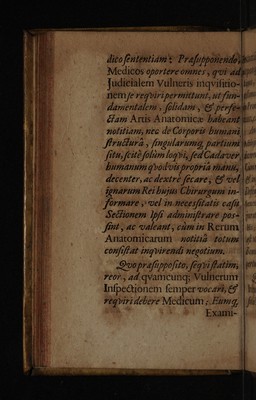 dico sententiam: Præsupponendo,
Medicos oportere omnes, qvi ad
Judicialem Vulneris inqvisitio-
nem se reqviri permittunt, ut fun-
damentalem, solidam, & perfe-
ctam Artis Anatomicæ habeant
notitiam, nec de Corporis humani
structurâ, singularumq; partium
situ, scitè solùm loqvi, sed Cadaver
humanum qvodvis propriâ manu,
decenter, ac dextrè secare, & vel
ignarum Rei hujus Chirurgum in-
formare, vel in necessitatis casu
Sectionem Ipsi administrare pos-
sint, ac valeant, cùm in Rerum
Anatomicarum notitiâ totum
consistat inqvirendi negotium.
Qvo præsupposito, seqvi statim,
reor, ad qvamcunq; Vulnerum
Inspectionem semper vocari, &
reqviri debere Medicum: Eumq;
Exami-